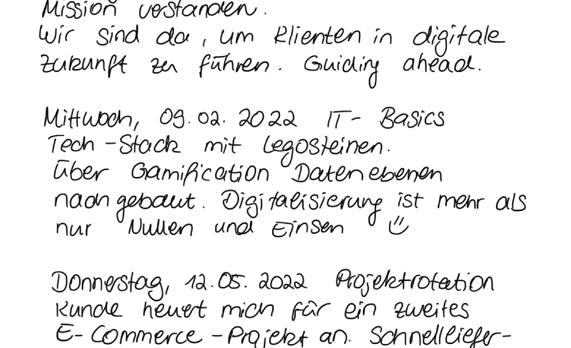 Mission verstanden.
Wir sind da, um Klienten in digitale
Zukunft zu führen. Guiding ahead.
Mittwoch, 09.02.2022 IT-Basics
Tech-Stack mit Legosteinen.
Über Gamification Datenebenen
nachgebaut. Digitalisierung ist mehr als
nur Nullen und Einsen ☺
Donnerstag, 12.05.2022 Projektrotation
Kunde heuert mich für ein zweites
E-Commerce-Projekt an. Schnellliefer-